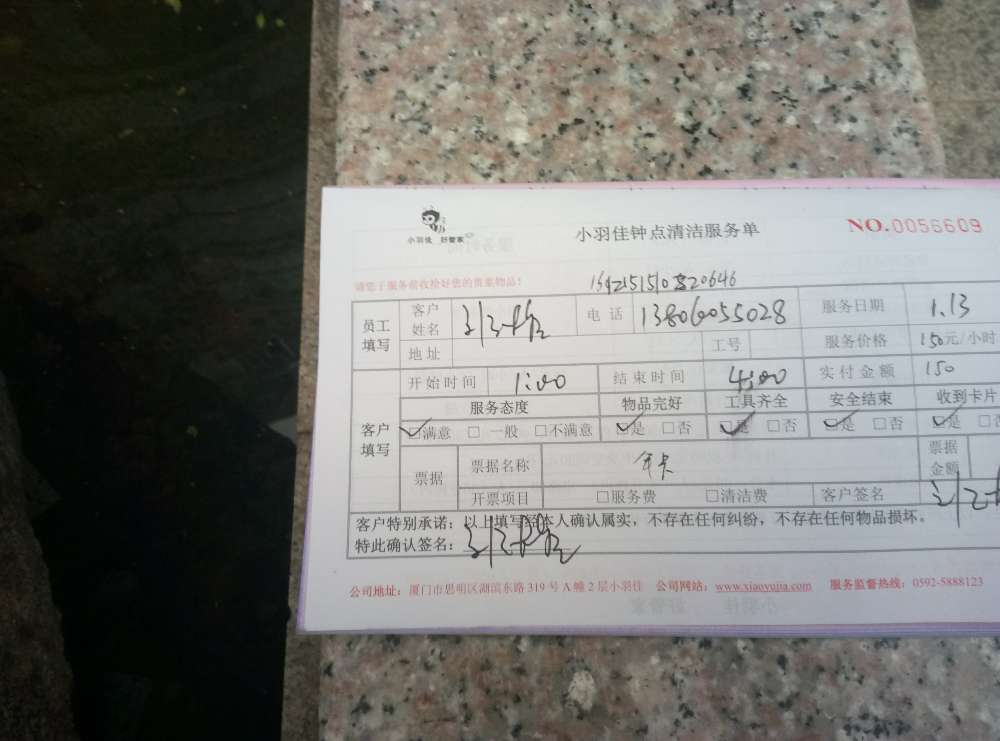 小羽佳 好管家
小羽佳钟点清洁服务单 NO.0056609
请您于服务前收拾好您的贵重物品!
员工填写 客户姓名 电话 13806055028 服务日期 1.13
地址 工号 服务价格 150元/小时
客户填写 开始时间 1:00 结束时间 4:00 实付金额 150
服务态度 物品完好 工具齐全 安全结束 收到卡片
☑满意 □一般 □不满意 ☑是 □否 ☑是 □否 ☑是 □否 ☑是
票据 票据名称 年卡 票据金额
开票项目 □服务费 □清洁费 客户签名
客户特别承诺:以上填写经本人确认属实,不存在任何纠纷,不存在任何物品损坏。
特此确认签名:
公司地址:厦门市思明区湖滨东路 319 号 A 幢 2 层小羽佳 公司网站:www.xiaoyujia.com 服务监督热线:0592-5888123